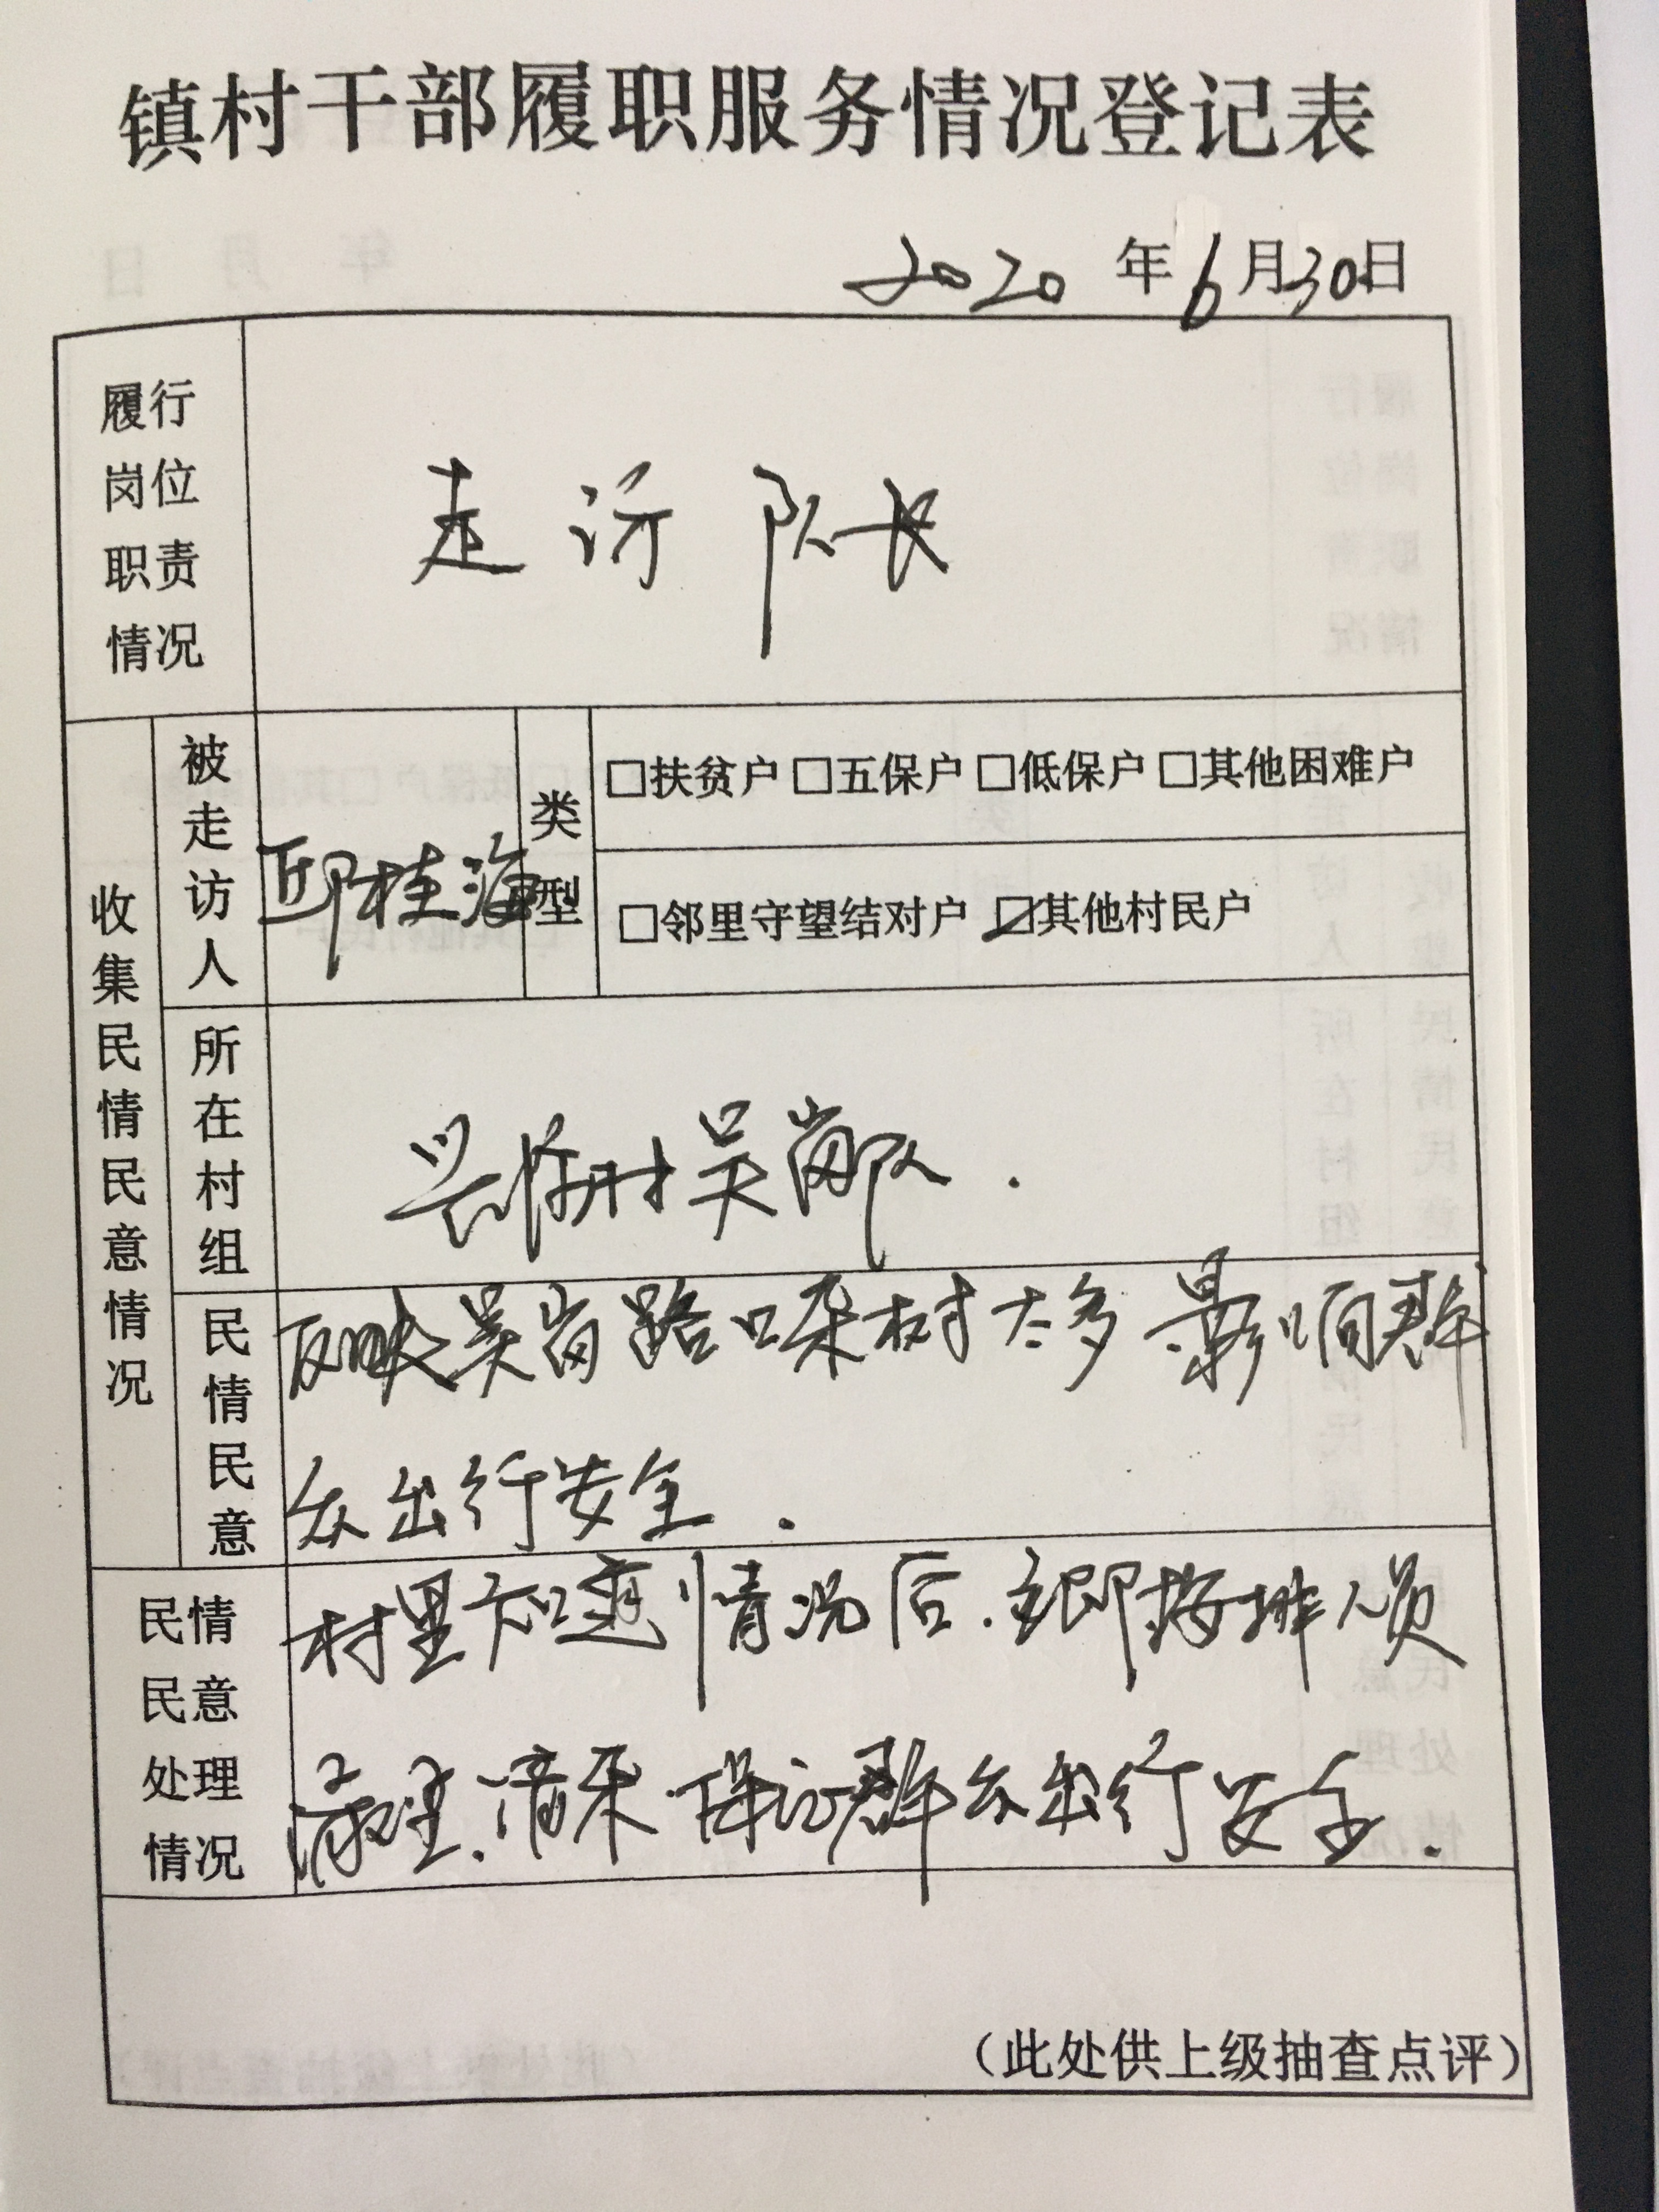 镇村干部履职服务情况登记表
2020年6月30日
履行岗位职责情况
走访队长
收集民情民意情况
被走访人
邱桂海
类型
□扶贫户 □五保户 □低保户 □其他困难户
□邻里守望结对户 ☑其他村民户
所在村组
兴临村吴岗队.
民情民意
反映吴岗路口杂树太多影响群
众出行安全.
民情民意处理情况
村里知道情况后.立即按排人员
清理.清杂.保证群众出行安全.
（此处供上级抽查点评）